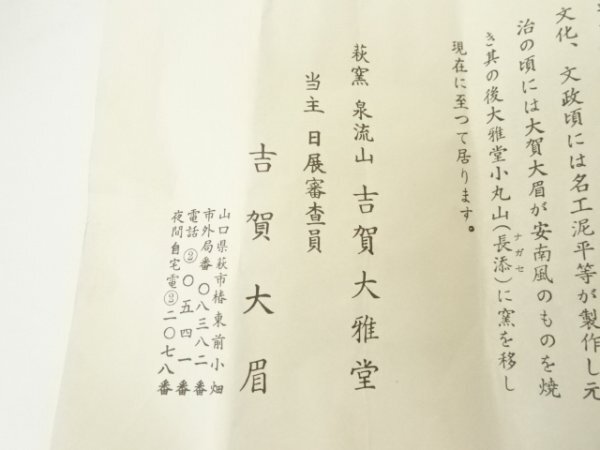 文化、文政頃には名工泥平等が製作し元
治の頃には大賀大眉が安南風のものを焼
き其の後大雅堂小丸山(長添)に窯を移し
ナガセ
現在に至つて居ります。
萩窯 泉流山 吉賀大雅堂
当主 日展審査員
吉賀大眉
山口県萩市椿東前小畑
市外局番 〇八三八二番
電話 ②〇五四一番
夜間自宅電②二〇七八番